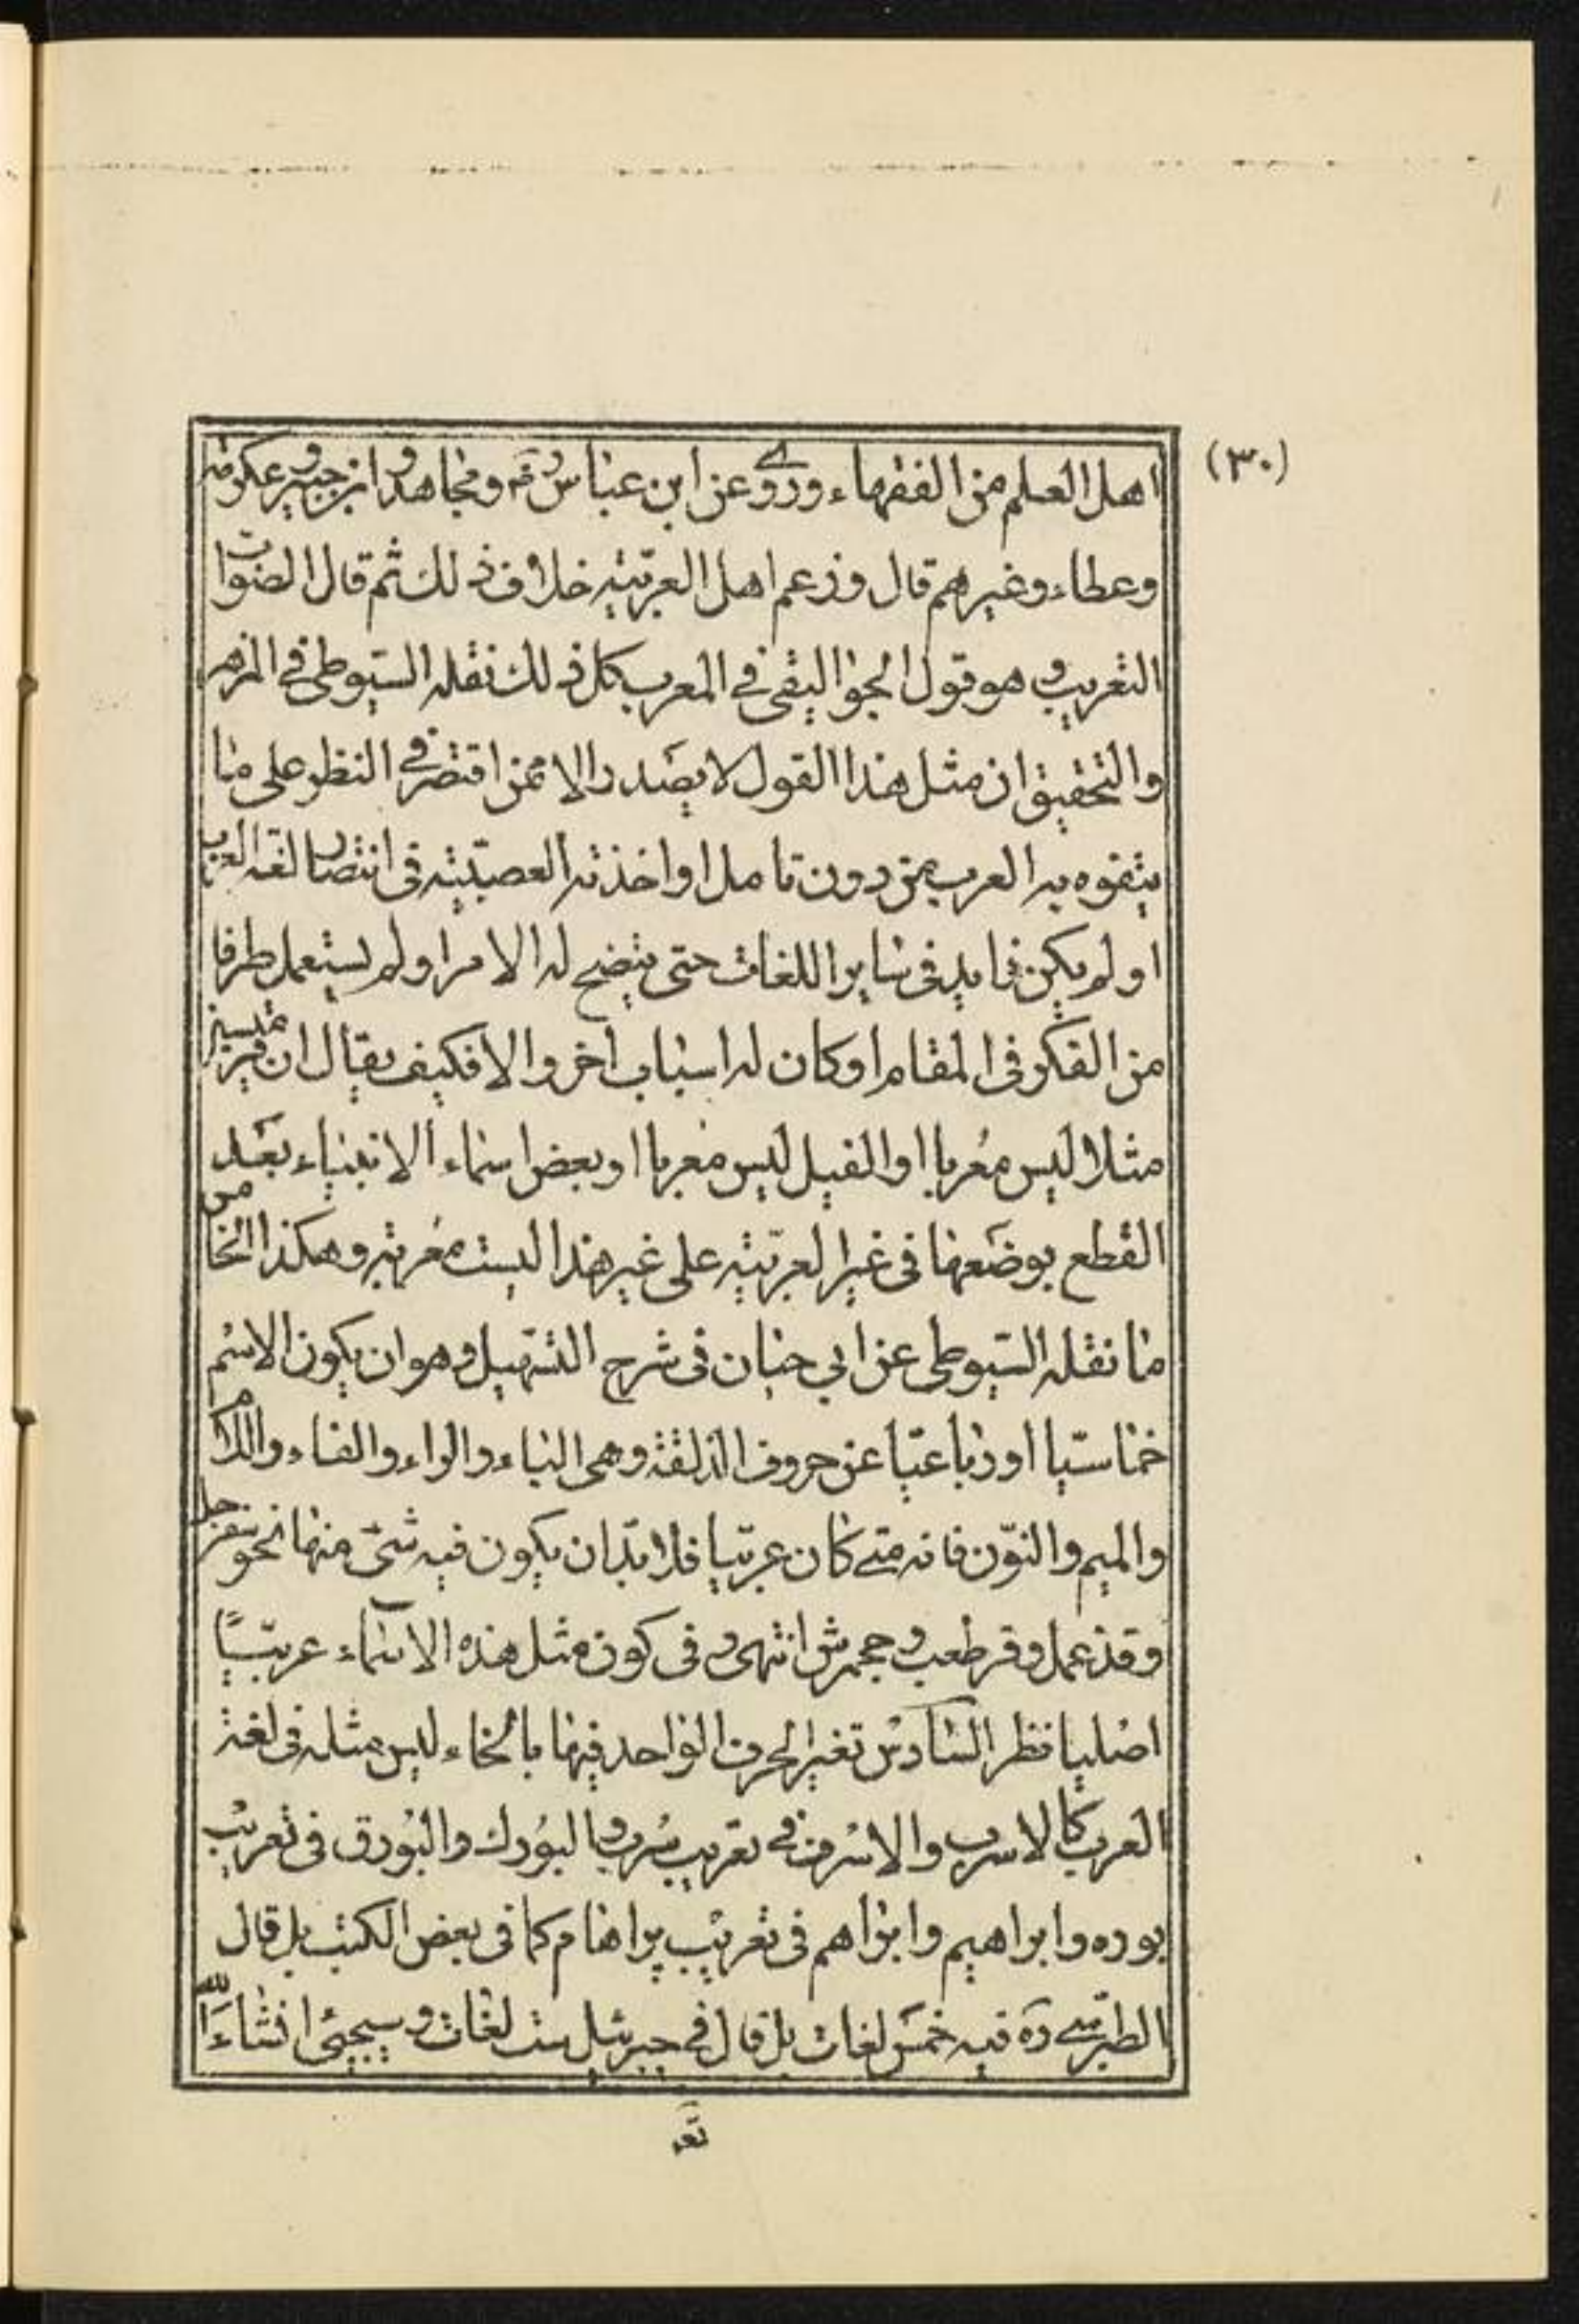 (٣٠)
اهل العلم من الفقهاء وروى عن ابن عباس رض ومجاهد وابن جبير وعكرمه
وعطاء وغيرهم قال وزعم اهل العربيّة خلاف ذلك ثم قال الصّواب
التعريب وهو قول الجواليقى فى المعرب كل ذلك نقله السّيوطى فى المزهر
والتحقيق ان مثل هذا القول لا يصدر الا ممن اقتصر فى النظر على ما
يتفوه به العرب من دون تامل او اخذته العصبيّة فى انتصار لغة العرب
او لم يكن ذا يد فى ساير اللغات حتى يتضح له الامر او لم يستعمل طرفا
من الفكر فى المقام او كان له اسباب اخر والا فكيف يقال ان
مثلا ليس معربا او الفيل ليس معربا او بعض اسماء الانبياء بعد
القطع بوضعها فى غير العربيّة على غير هذا ليست معربة وهكذا الخامس
ما نقله السّيوطى عن ابى حيان فى شرح التسهيل وهو ان يكون الاسم
خماسيّا او رباعيّا عن حروف الذلقة وهى الباء والراء والفاء واللام
والميم والنّون فانه متى كان عربيّا فلا بدّ ان يكون فيه شئ منها نحو سفرجل
وقذعمل وقرطعب وجحمرش انتهى وفى كون مثل هذه الاسماء عربيّا
اصليا نظر السّادس تغير الحرف الواحد فيها بانحاء ليس مثله فى لغة
العرب كالاسرب والاسرف فى تعريب سرب وبالبورك والبورق فى تعريب
بوره وابراهيم وابراهم فى تعريب براهام كما فى بعض الكتب بل قال
الطبرسى ره فيه خمس لغات بل قال فى جبرئيل ست لغات وسيجئ انشاء الله
تعَ